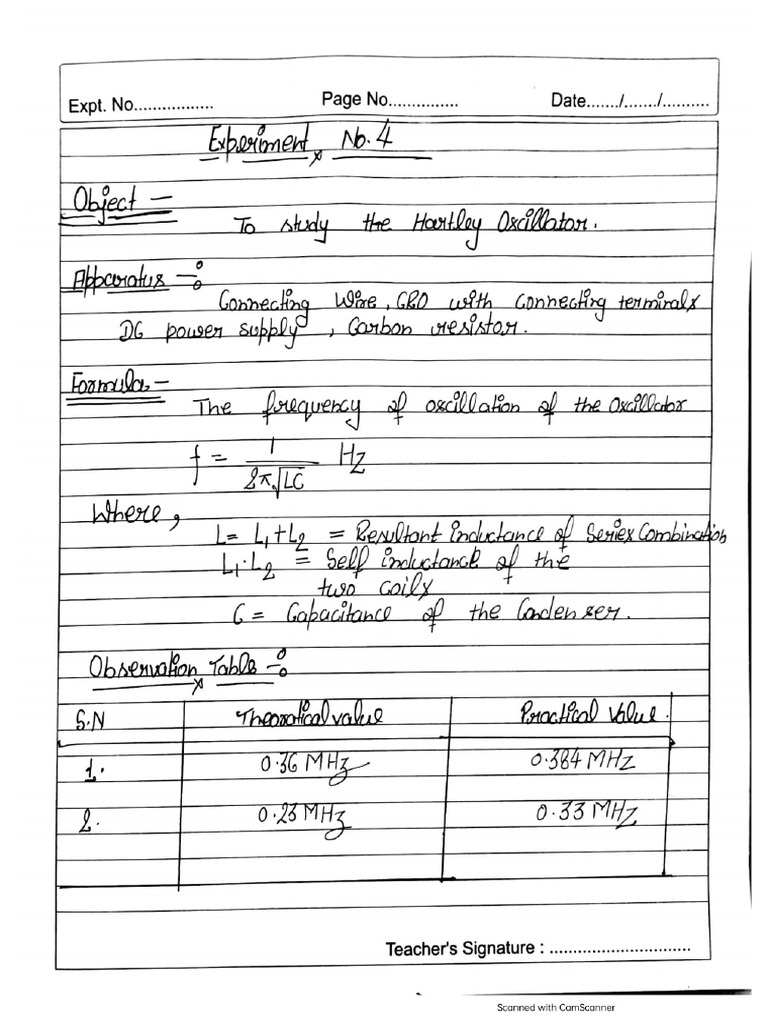 Expt. No................ Page No.............. Date......./......./..........
Experiment No. 4
Object –
To study the Hartley Oscillator.
Apparatus –:
Connecting Wire, CRO with connecting terminals
DC power supply, Carbon resistor.
Formula –
The frequency of oscillation of the Oscillator
f = 1 / 2π√LC Hz
Where,
L = L₁+L₂ = Resultant inductance of Series Combination
L₁·L₂ = Self inductance of the
two coils
C = Capacitance of the Condenser.
Observation Table –:
S.N Theoratical value Practical Value.
1. 0.36 MHz 0.384 MHz
2. 0.23 MHz 0.33 MHz
Teacher's Signature : ..............................
Scanned with CamScanner